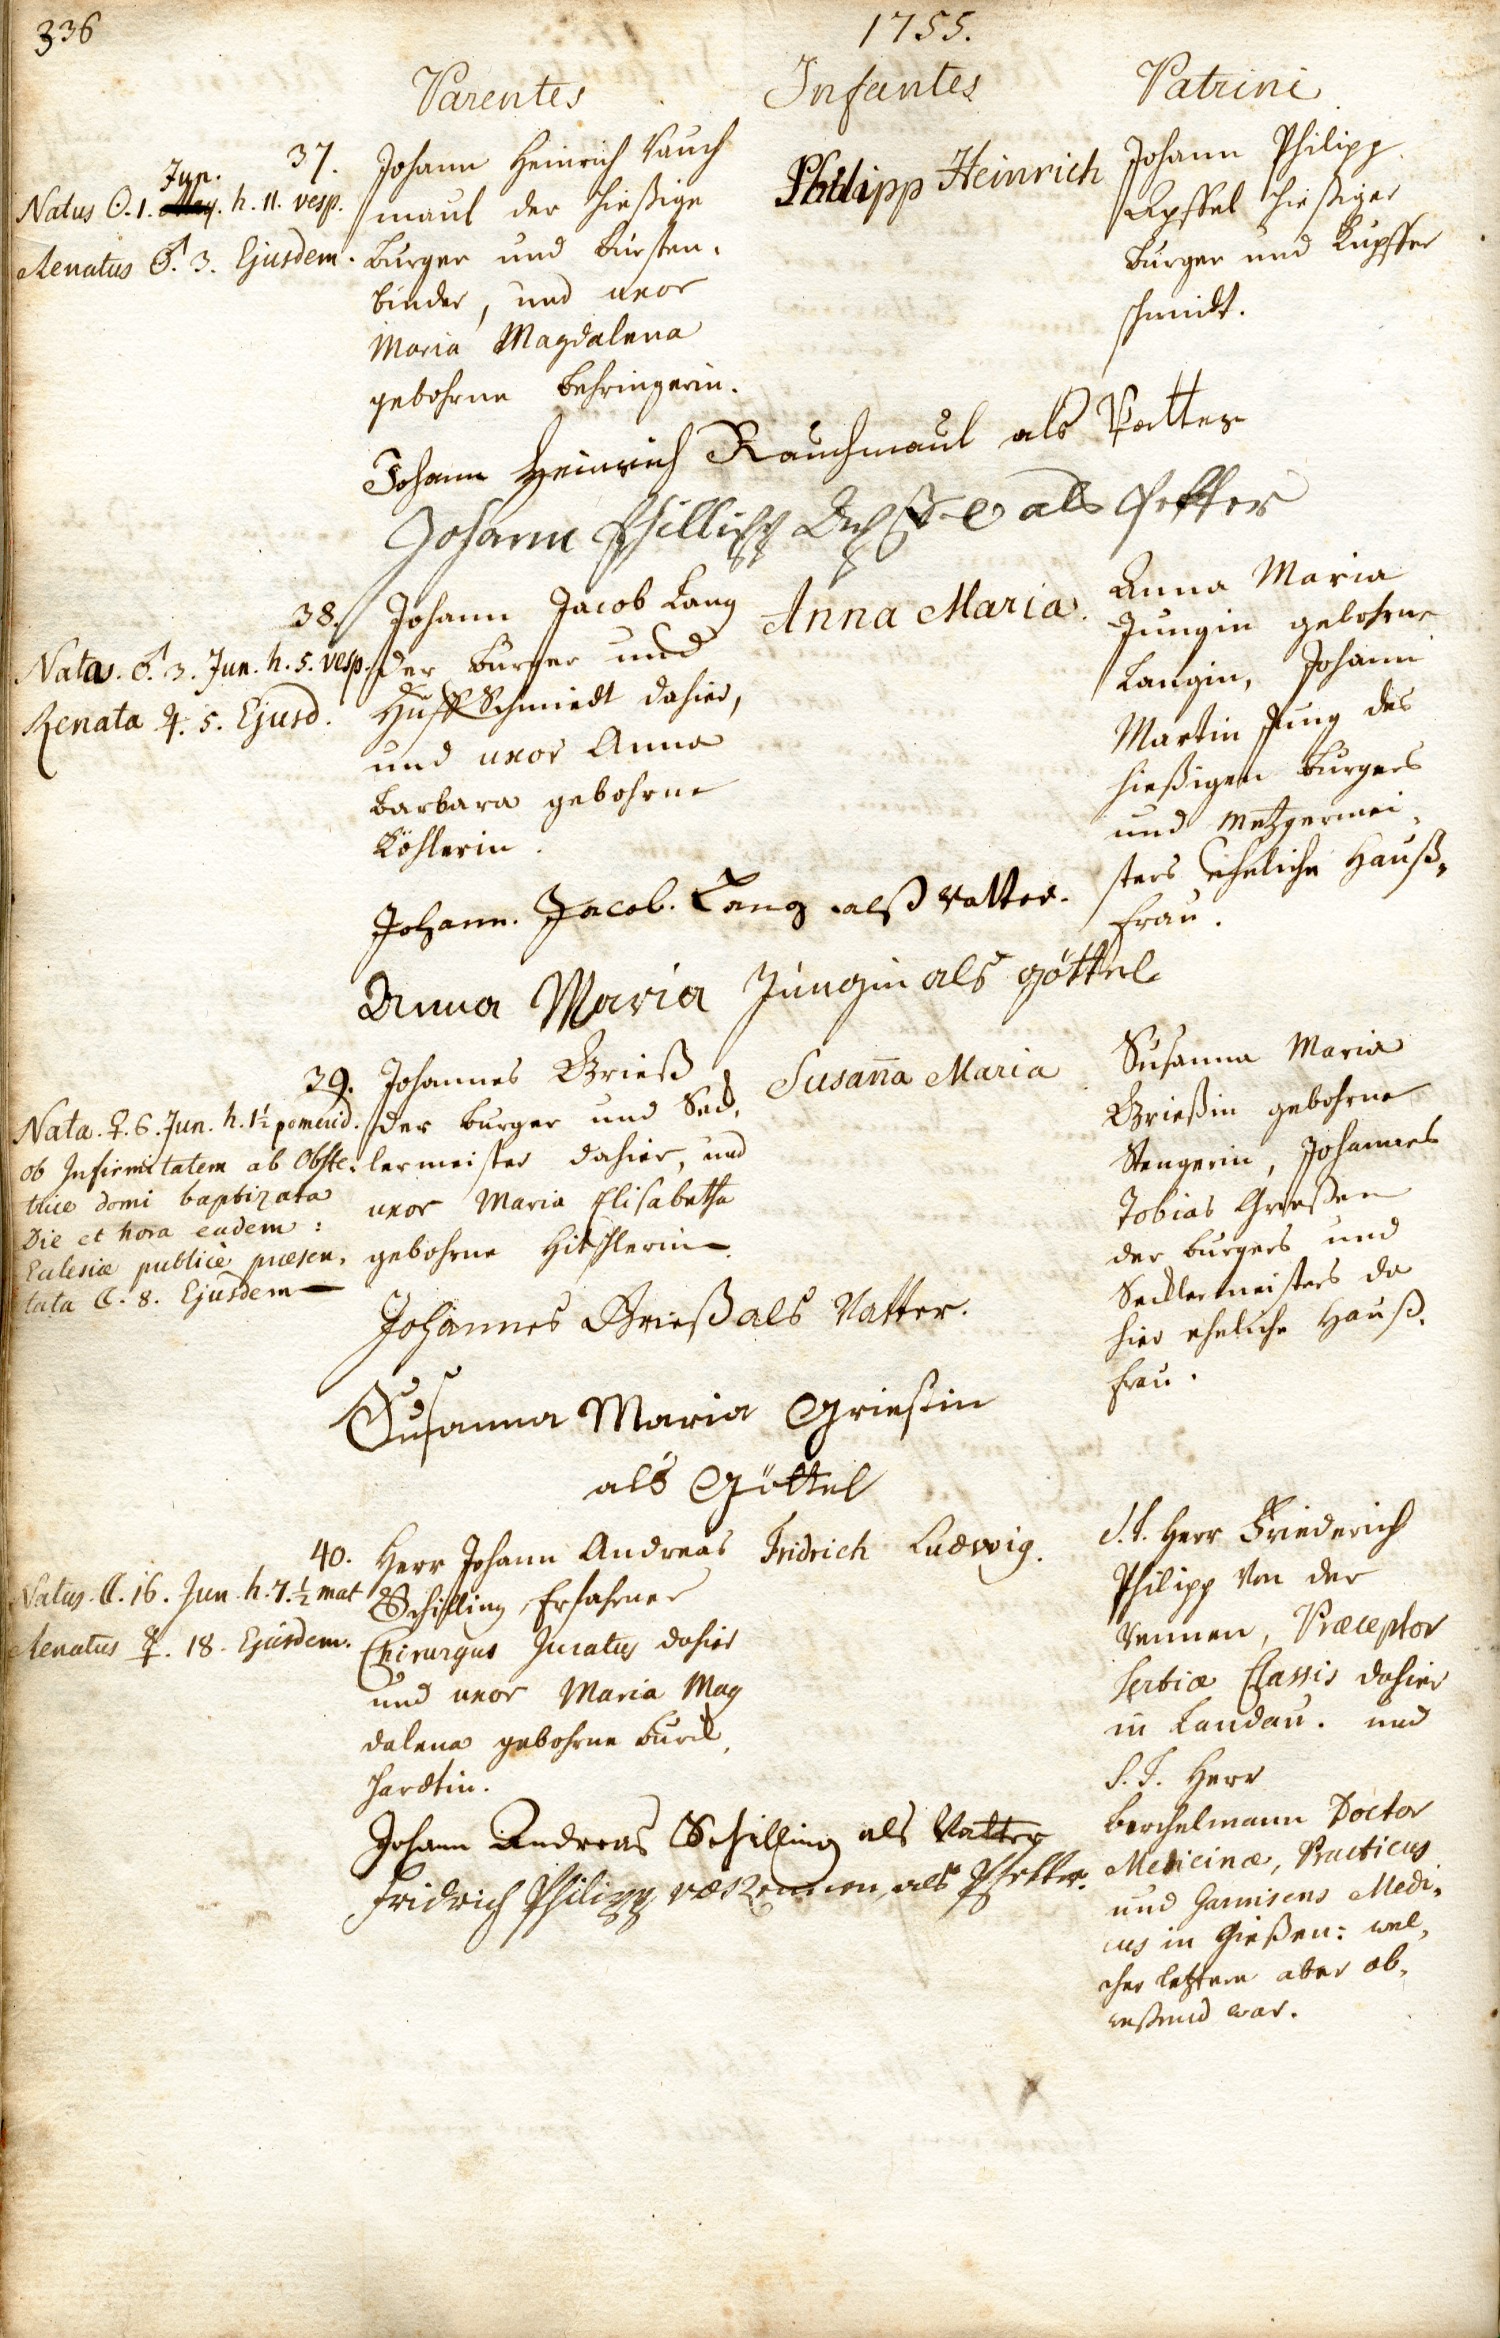 336
1755.
Parentes
Infantes
Patrini
37.
Jun.
Natus ☉. 1. May. h. 11. vesp.
Renatus ♂. 3. Ejusdem.
Johann Heinrich Rauch
maul der hießige
burger und bürsten,
binder, und uxor
Maria Magdalena
gebohrne Behringerin.
Philipp Heinrich
Johann Philipp
Apffel hießiger
burger und Kupffer
schmidt.
Johann Heinrich Rauchmaul als Vatter
Johann Phillipp als Petter
38.
Nata. ♂. 3. Jun. h. 5. vesp.
Renata ♃. 5. Ejusd.
Johann Jacob Lang
der burger und
Huff Schmiedt dahier,
und uxor Anna
Barbara gebohrne
Köhlerin.
Anna Maria.
Anna Maria
Jungin gebohrne
Langin, Johann
Martin Jung des
hießigen burgers
und Metzgermei,
sters eheliche Hauß,
frau.
Johann. Jacob. Lang alß vatter.
Anna Maria Jungin als göttel
39.
Nata. ♀. 6. Jun. h. 1½ pomerid.
ob Infirmitatem ab Obste,
trice domi baptizata
Die et hora eadem:
Eclesiæ publicè præsen,
tata ☾. 8. Ejusdem
Johannes Grieß
der burger und Sed,
lermeister dahier, und
uxor Maria Elisabetha
gebohrne Hitschlerin.
Susan̄a Maria
Susanna Maria
Grießin gebohrne
Stengerin, Johannes
Tobias Grießen
der burgers und
Seddlermeisters da
hier eheliche Hauß,
frau.
Johannes Grieß als Vatter.
Susanna Maria Grießin
als Göttel
40.
Natus. ☾. 16. Jun. h. 7.½ mat
Renatus ☿. 18. Ejusdem.
Herr Johann Andreas
Schilling, Erfahrner
Chirurgus Juratus dahier
und uxor Maria Mag
dalena gebohrne Burck,
hardtin.
Fridrich Ludwig.
S. T. Herr Friederich
Philipp Von der
Rennen, Præceptor
tertiæ Classis dahier
in Landau. und
S. T. Herr
Berchelmann Doctor
Medicinæ, Practicus
und Garnisons Medi,
cus in Gießen: wel,
cher letztere aber ab,
weßend war.
Johann Andreas Schilling als Vatter
Fridrich Philipp Rennen, als Pfetter.